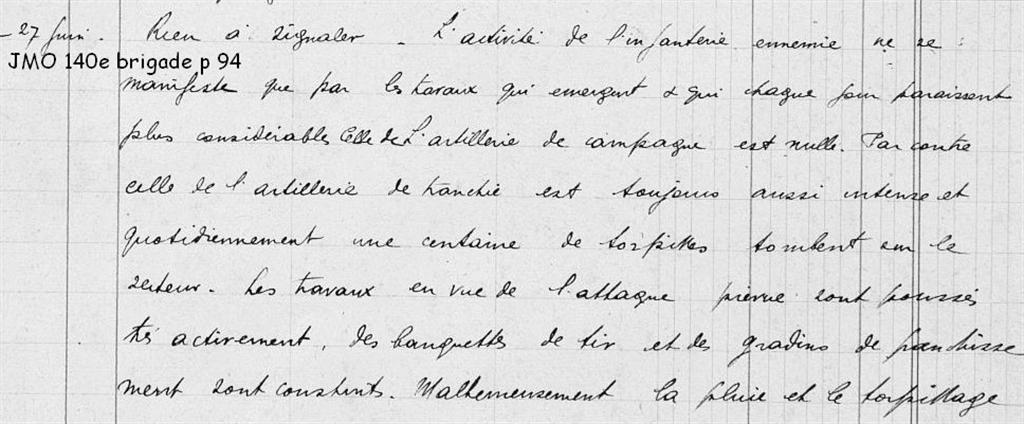 - 27 Juin. Rien à signaler. L'activité de l'infanterie ennemie ne se
JMO 140e brigade p 94
manifeste que par les travaux qui emergent & qui chaque jour paraissent
plus considérables Celle de L'artillerie de campagne est nulle. Par contre
celle de l'artillerie de tranchée est toujours aussi intense et
quotidiennement une centaine de torpilles tombent sur le
secteur. Les travaux en vue de l'attaque prévue sont poussés
très activement, des banquettes de tir et des gradins de franchisse
ment sont construits. Malheureusement la pluie et le torpillage